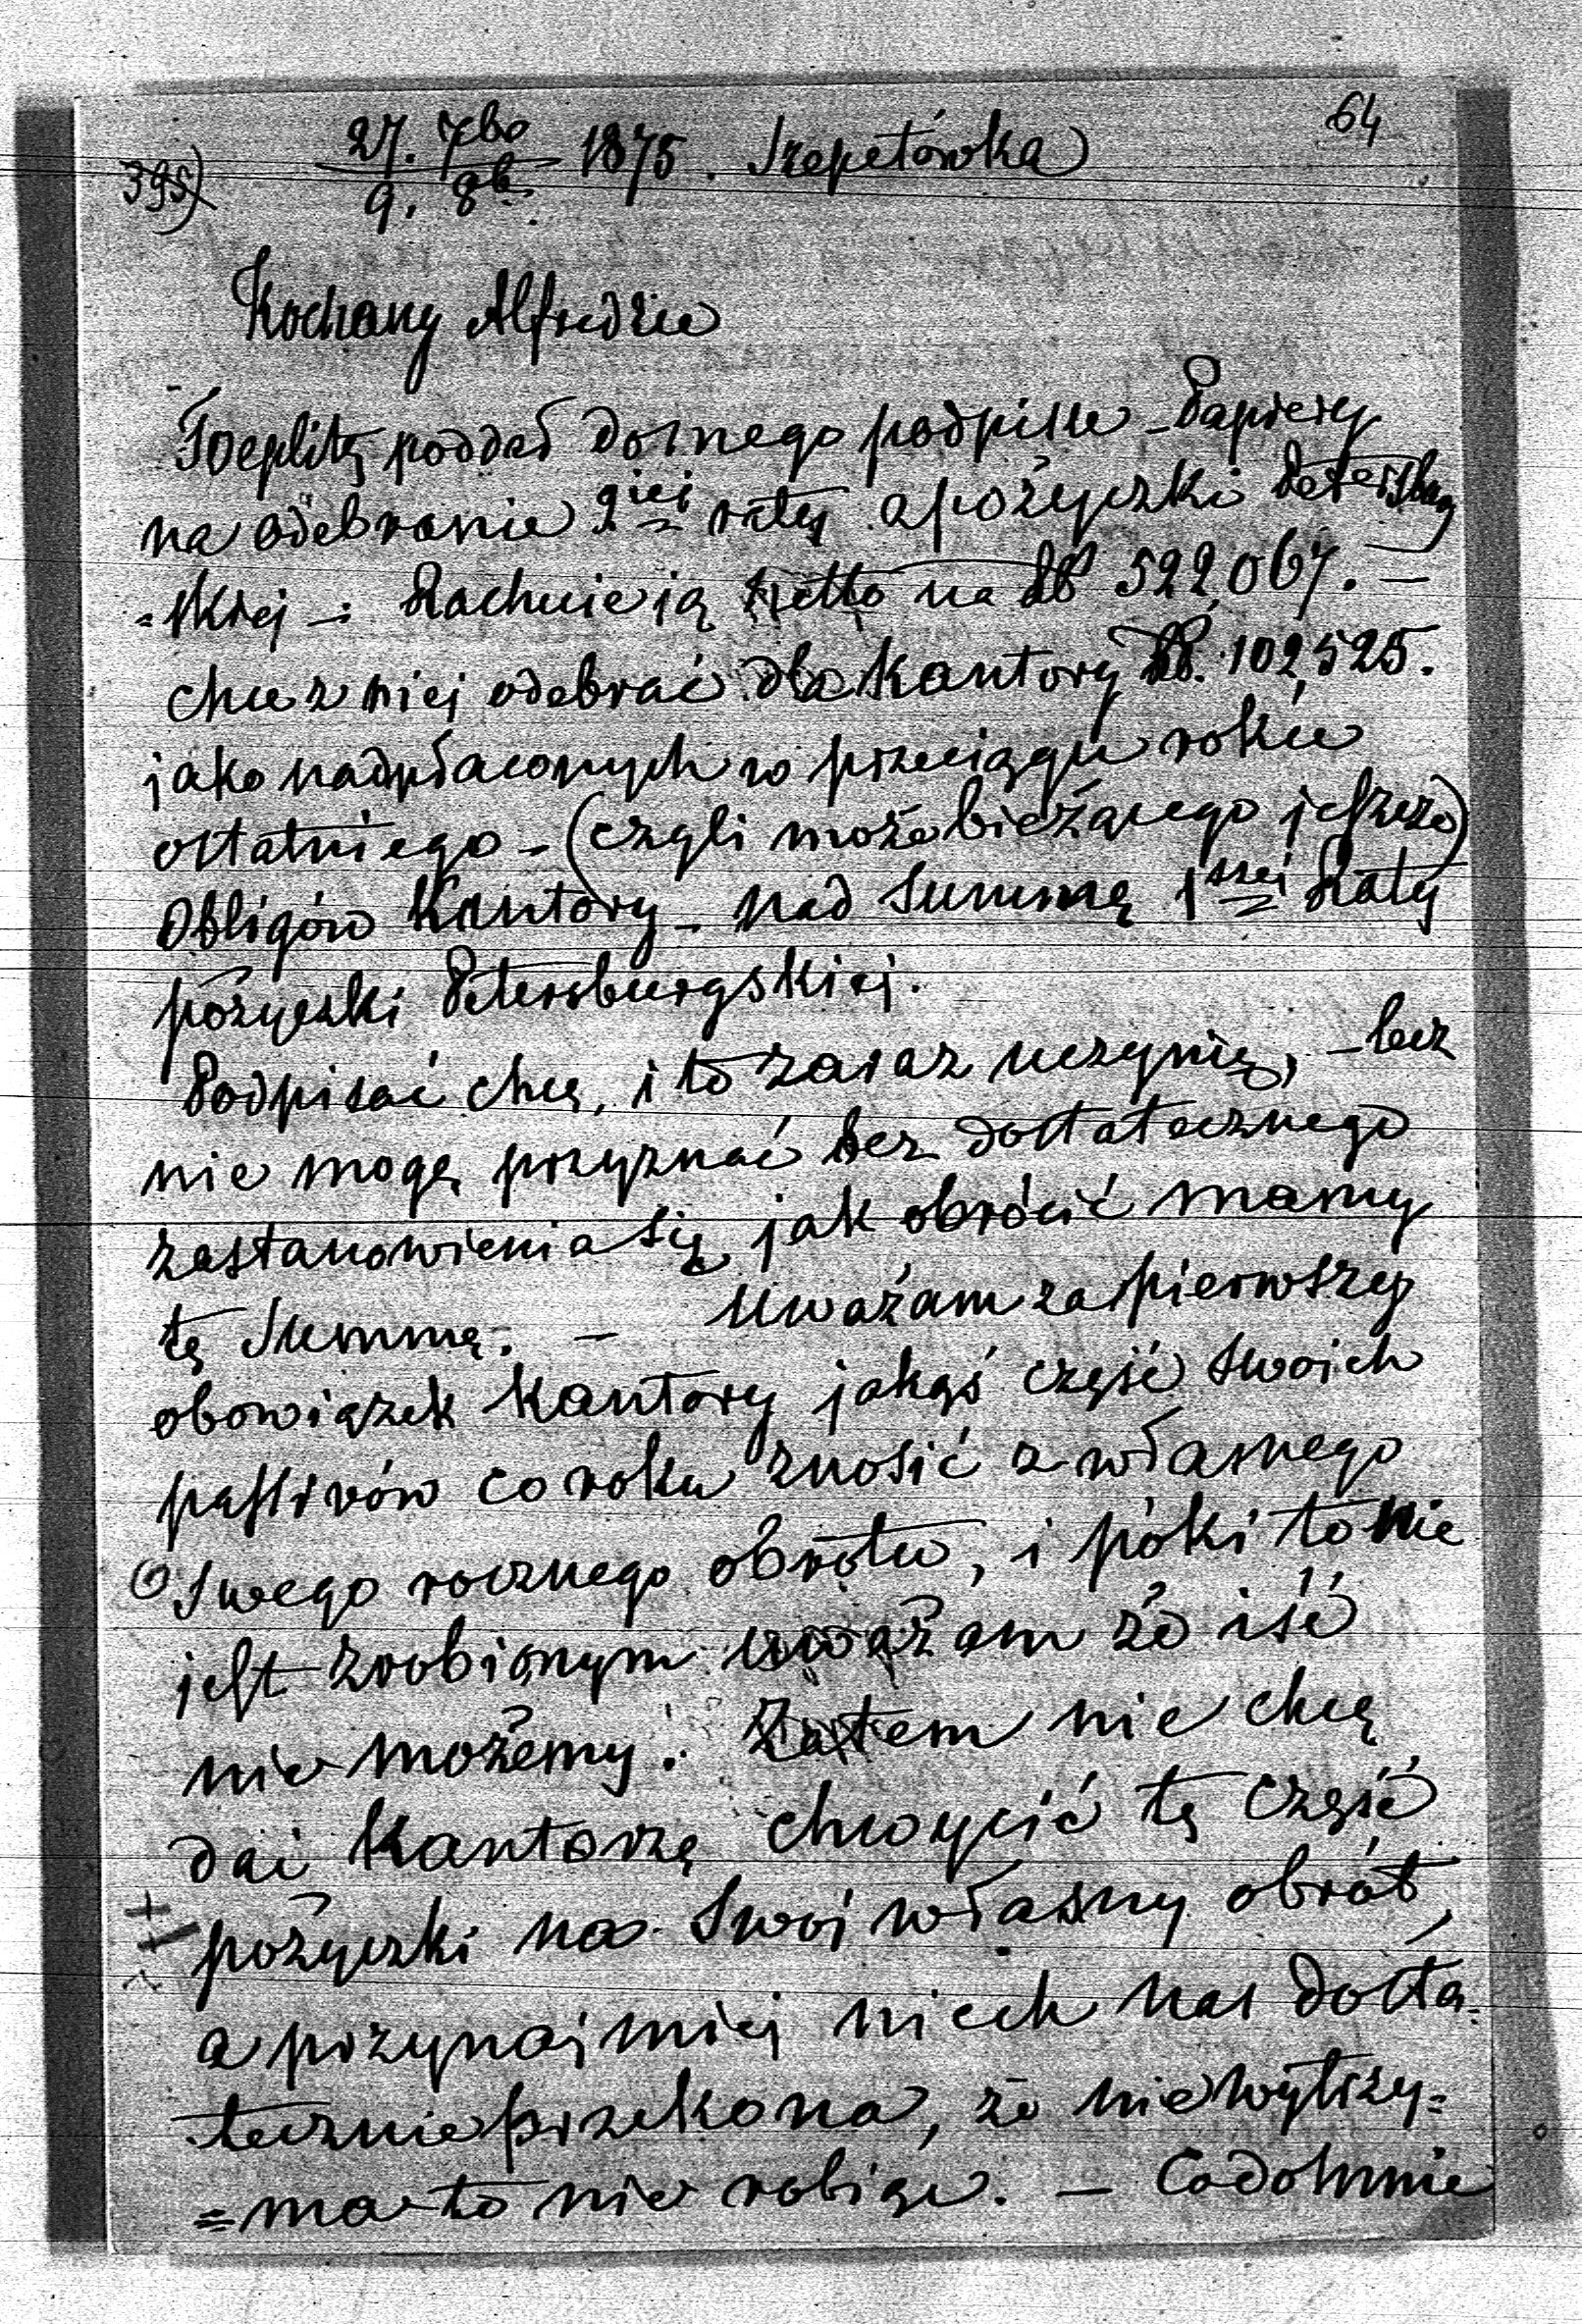 64
395)
27. 7bo
9. 8b. 1875. Szepetówka
Kochany Alfredzie
Toeplitz poddał do mego podpisu – Papiery
na odebranie 2giej raty z pożyczki Petersburg
=skiej – Rachuje ją netto na RS 522,067. –
chce z niej odebrać dla Kantory RS. 102,525.
jako nadpłaconych w przeciągu roku
ostatniego – (czyli może bieżącego jeszcze)
Obligów Kantory – nad Summę 1szej Raty
pożyczki Petersburgskiej.
Podpisać chcę, i to zaraz uczynię, – lecz
nie mogę przyznać bez dostatecznego
zastanowienia się jak obrócić mamy
tę Summę. – Uważam za pierwszy
obowiązek Kantory jakąś część swoich
passivów co roku znosić z własnego
swego rocznego obrotu, i póki to nie
jest zrobionym uważam że iść
nie możemy. Zatem nie chcę
dać Kantorze chwycić tę część
pożyczki na swój własny obrót
a przynajmniej niech nas dosta=
tecznie przekona, że nie wytrzy=
=ma to nie robiąc. – Co do mnie